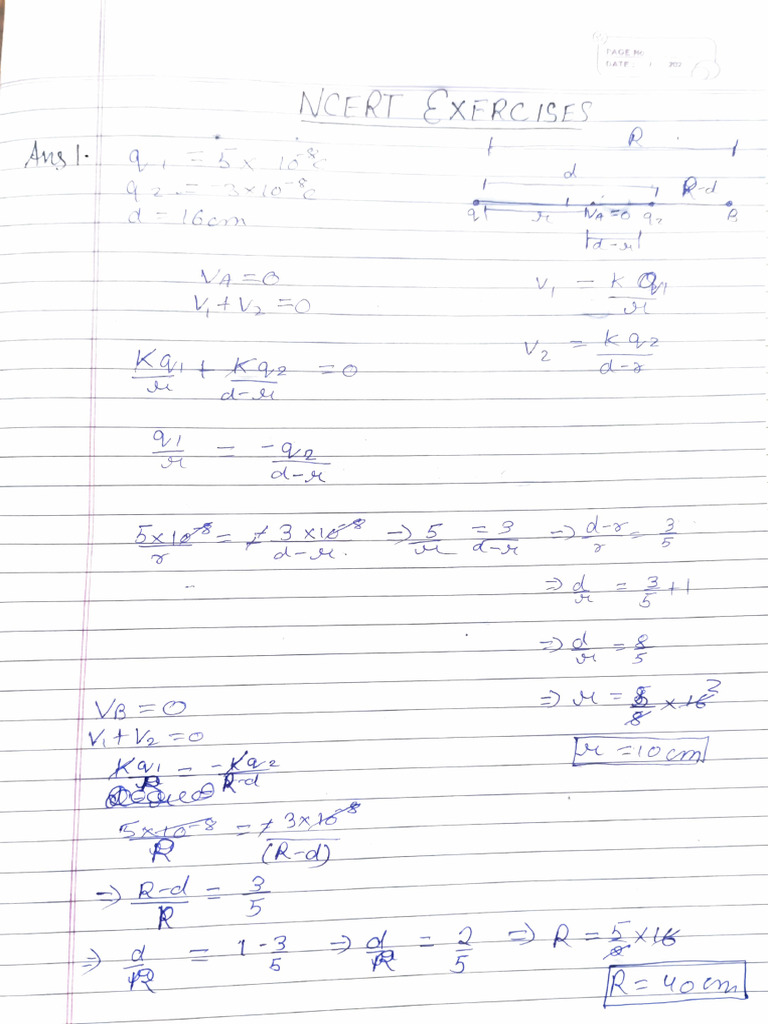 PAGE NO
DATE: / / 202
NCERT EXERCISES
Ans 1. q1 = 5 × 10^-8 C
q2 = -3×10^-8 C
d = 16cm
R
d
R-d
q1 r VA=0 q2 B
d-r
VA = 0
V1 + V2 = 0
V1 = K Q1/r
V2 = K q2/d-r
Kq1/r + Kq2/d-r = 0
q1/r = -q2/d-r
5×10^-8/r = +3×10^-8/d-r. ⇒ 5/r = 3/d-r ⇒ d-r/r = 3/5
⇒ d/r = 3/5 + 1
⇒ d/r = 8/5
⇒ r = 5/8 × 16 2
r = 10 cm
VB = 0
V1 + V2 = 0
Kq1/R = -Kq2/R-d
5×10^-8/R = +3×10^-8/(R-d)
⇒ R-d/R = 3/5
⇒ d/R = 1 - 3/5 ⇒ d/R = 2/5 ⇒ R = 5/2 × 16
R = 40 cm